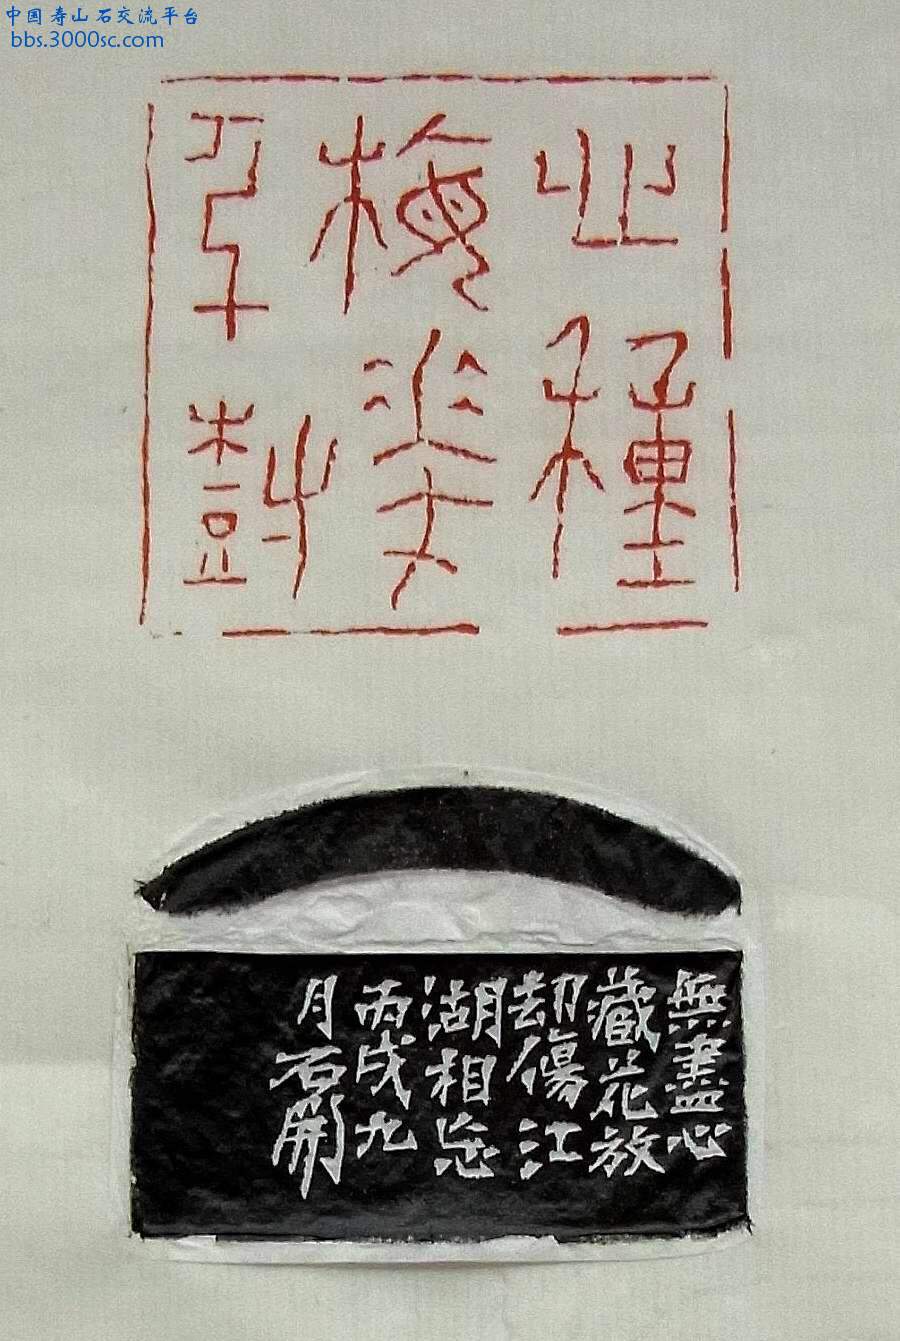 中国寿山石交流平台
bbs.3000sc.com
種
梅
樹
無盡心
藏花放
刧傷江
湖相忘
丙戌九
月石開